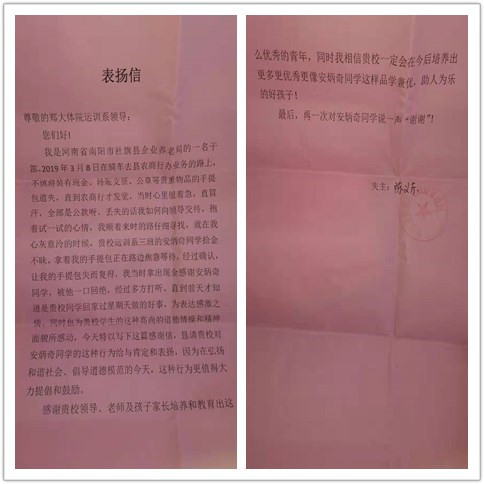 表扬信
尊敬的郑大体院运训系领导：
您们好！
我是河南省南阳市社旗县企业养老局的一名干
部，2019年3月8日在骑车去县农商行办业务的路上，
不慎将装有现金、转账支票、公章等贵重物品的手提
包遗失，直到农商行才发觉，当时心里慌着急，直冒
汗，全部是公款呀，丢失的话我如何向领导交待，抱
着试一试的心情，我顺着来时的路仔细寻找，就在我
心灰意冷的时候，贵校运训系三班的安炳奇同学拾金
不昧，拿着我的手提包正在路边焦急等待，经过确认，
让我的手提包失而复得，我当时拿出现金感谢安炳奇
同学，被他一口回绝，经过多方打听，直到前天才知
道是贵校同学回家过星期天做的好事，为表达感激之
情，同时也为贵校学生的这种高尚的道德情操和精神
面貌所感动，今天特以写下这篇感谢信，恳请贵校对
安炳奇同学的这种行为给与肯定和表扬，因为在弘扬
和谐社会、倡导道德模范的今天，这种行为更值得大
力提倡和鼓励。
感谢贵校领导、老师及孩子家长培养和教育出这
么优秀的青年，同时我相信贵校一定会在今后培养出
更多更优秀更像安炳奇同学这样品学兼优，助人为乐
的好孩子！
最后，再一次对安炳奇同学说一声“谢谢”！
失主：